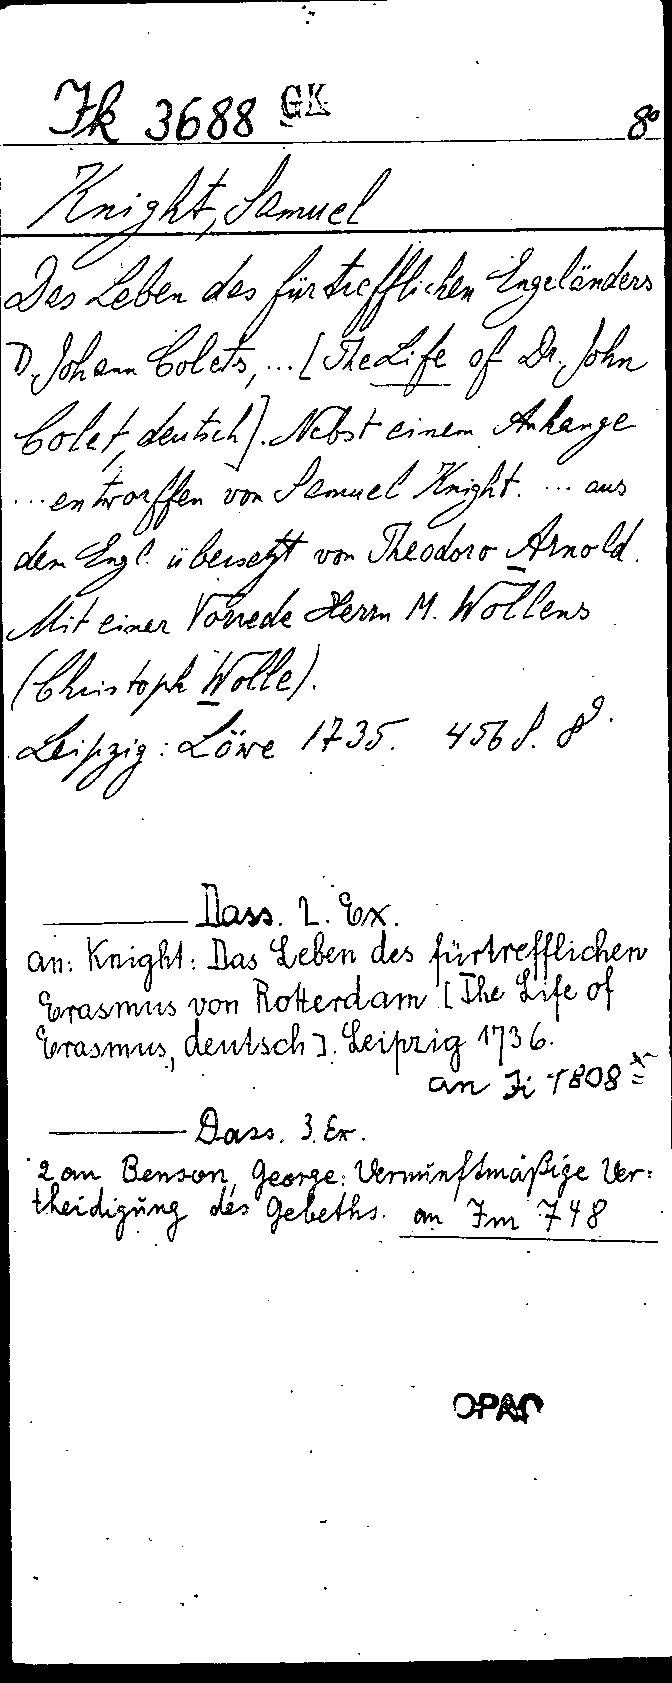 Jk 3688 GK 8°
Knight, Samuel
Das Leben des fürtrefflichen Engeländers
D. Johann Colets, ... [The Life of Dr. John
Colet, deutsch]. Nebst einem Anhange
... entworffen von Samuel Knight. ... aus
dem Engl. übersetzt von Theodoro Arnold.
Mit einer Vorrede Herrn M. Wollens
(Christoph Wolle).
Leipzig: Löwe 1735. 456 S. 8°.
Dass. 2. Ex.
an: Knight: Das Leben des fürtrefflichen
Erasmus von Rotterdam [The Life of
Erasmus, deutsch]. Leipzig 1736.
an Ji 1808
Dass. 3. Ex.
2 an Benson, George: Vernunftmäßige Ver:
theidigung des Gebeths. an Jm 748
OPAC